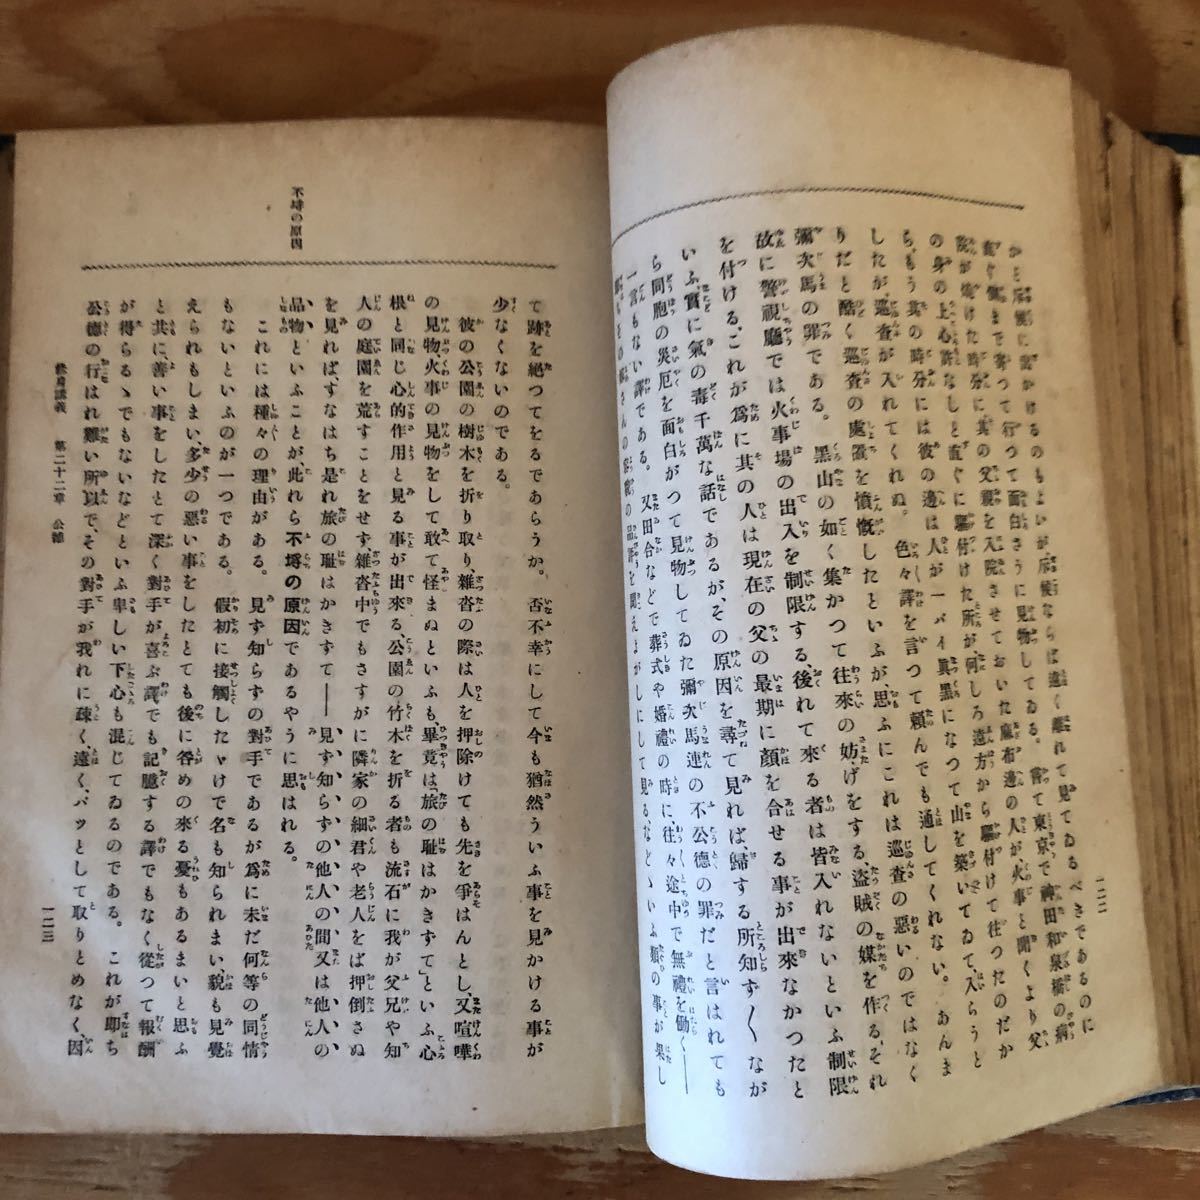 かと反對に出かけるのもよいが反對ならば遠く離れて見てゐるべきであるのに
直ぐ側まで寄つて行つて面白さうに見物してゐる。嘗て東京で神田和泉橋の病
院が燒けた時分に其の父親を入院させておいた麻布邊の人が、火事と聞くより父
の身の上心許なしと直ぐに驅付けた所が、何しろ遠方から驅付けて往つたのだか
ら、もう其の時分には彼の邊は人が一パイ眞黑になつて山を築いてゐて、入らうと
したが巡査が入れてくれぬ。色々譯を言つて頼んでも通してくれない。あんま
りだと酷く巡査の處置を憤慨したといふが、思ふにこれは巡査の惡いのではなく
彌次馬の罪である。黑山の如く集かつて往來の妨げをする、盜賊の媒を作る、それ
故に警視廳では火事場の出入を制限する、後れて來る者は皆入れないといふ制限
を付ける、これが爲に其の人は現在の父の最期に顏を合せる事が出來なかつたと
いふ、實に氣の毒千萬な話であるが、その原因を尋て見れば、歸する所知ず〱なが
ら同胞の災厄を面白がつて見物してゐた彌次馬連の不公德の罪だと言はれても
一言もない譯である。又田舍などで葬式や婚禮の時に、往々途中で無禮を働く――
の品評を聞えよがしにして見る、などゝいふ類の事が果し
一二二
不埓の原因
て跡を絕つてをるであらうか。否不幸にして今も猶然ういふ事を見かける事が
少なくないのである。
彼の公園の樹木を折り取り、雜沓の際は人を押除けても先を爭はんとし、又喧嘩
の見物火事の見物をして敢て怪まぬといふも、畢竟は、旅の耻はかきすて」といふ心
根と同じ心的作用と見る事が出來る、公園の竹木を折る者も流石に我が父兄や知
人の庭園を荒すことをせず雜沓中でもさすがに隣家の細君や老人をば押倒さぬ
を見れば、すなはち是れ旅の耻はかきすて――見ず知らずの他人の間又は他人の
品物といふことが、此れら不埓の原因であるやうに思はれる。
これには種々の理由がある。見ず知らずの對手であるが爲に未だ何等の同情
もないといふのが一つである。假初に接觸したゞけで名も知られまい、貌も見覺
えられもしまい、多少の惡い事をしたとても後に咎めの來る憂もあるまいと思ふ
と共に、善い事をしたとて深く對手が喜ぶ譯でも記臆する譯でもなく從つて報酬
が得らるゝでもないなどといふ卑しい下心も混じてゐるのである。これが卽ち
公德の行はれ難い所以で、その對手が我れに疎く遠く、パッとして取りとめなく、因
修身講義　第二十二章　公德
一二三